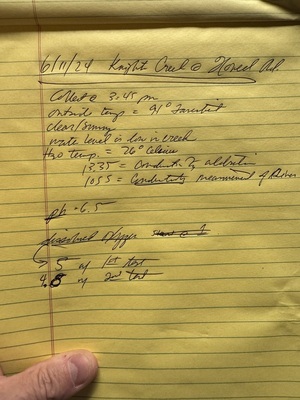 6/11/24 Knight Creek @ Howell Rd.
Collect @ 3:45 pm
outside temp = 91° Farenheit
clear/sunny
water level is low in creek
H2O temp. = 26° Celsius
1335 = Conductivity
1055 = Conductivity measurement of
ph = 6.5
dissolved oxygen
5 w/ 1st test
4.8 w/ 2nd test